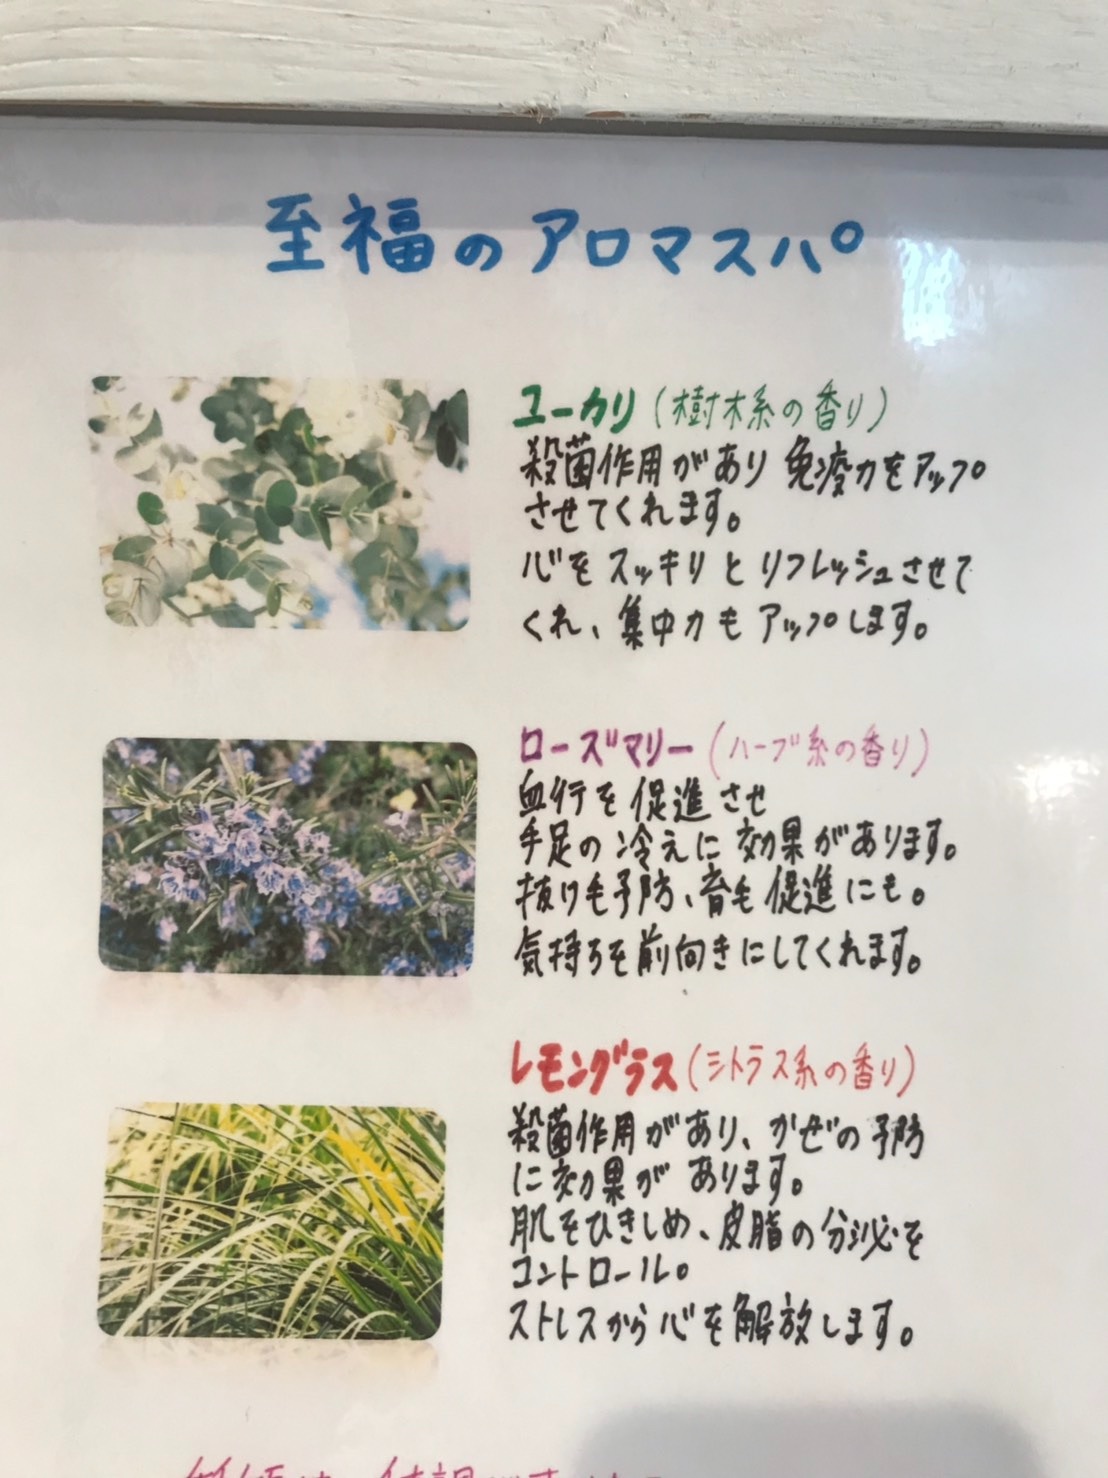 至福のアロマスパ
ユーカリ(樹木系の香り)
殺菌作用があり 免疫力をアップ
させてくれます。
心をスッキリとリフレッシュさせて
くれ、集中力もアップします。
ローズマリー(ハーブ系の香り)
血行を促進させ
手足の冷えに効果があります。
抜け毛予防、育毛促進にも。
気持ちを前向きにしてくれます。
レモングラス(シトラス系の香り)
殺菌作用があり、かぜの予防
に効果があります。
肌をひきしめ、皮脂の分泌を
コントロール。
ストレスから心を解放します。